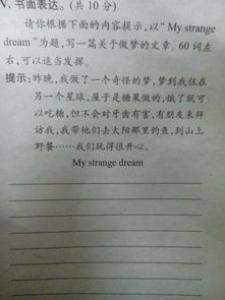 V. 书面表达。(共 10 分)
请你根据下面的内容提示,以“My strange
dream”为题,写一篇关于做梦的文章。60 词左
右,可以适当发挥。
提示:昨晚,我做了一个奇怪的梦,梦到我住在
另一个星球,屋子是糖果做的,饿了就可
以吃糖,但不会对牙齿有害,有朋友来拜
访我,我带他们去太阳那里钓鱼,到山上
野餐……我们玩得很开心。
My strange dream